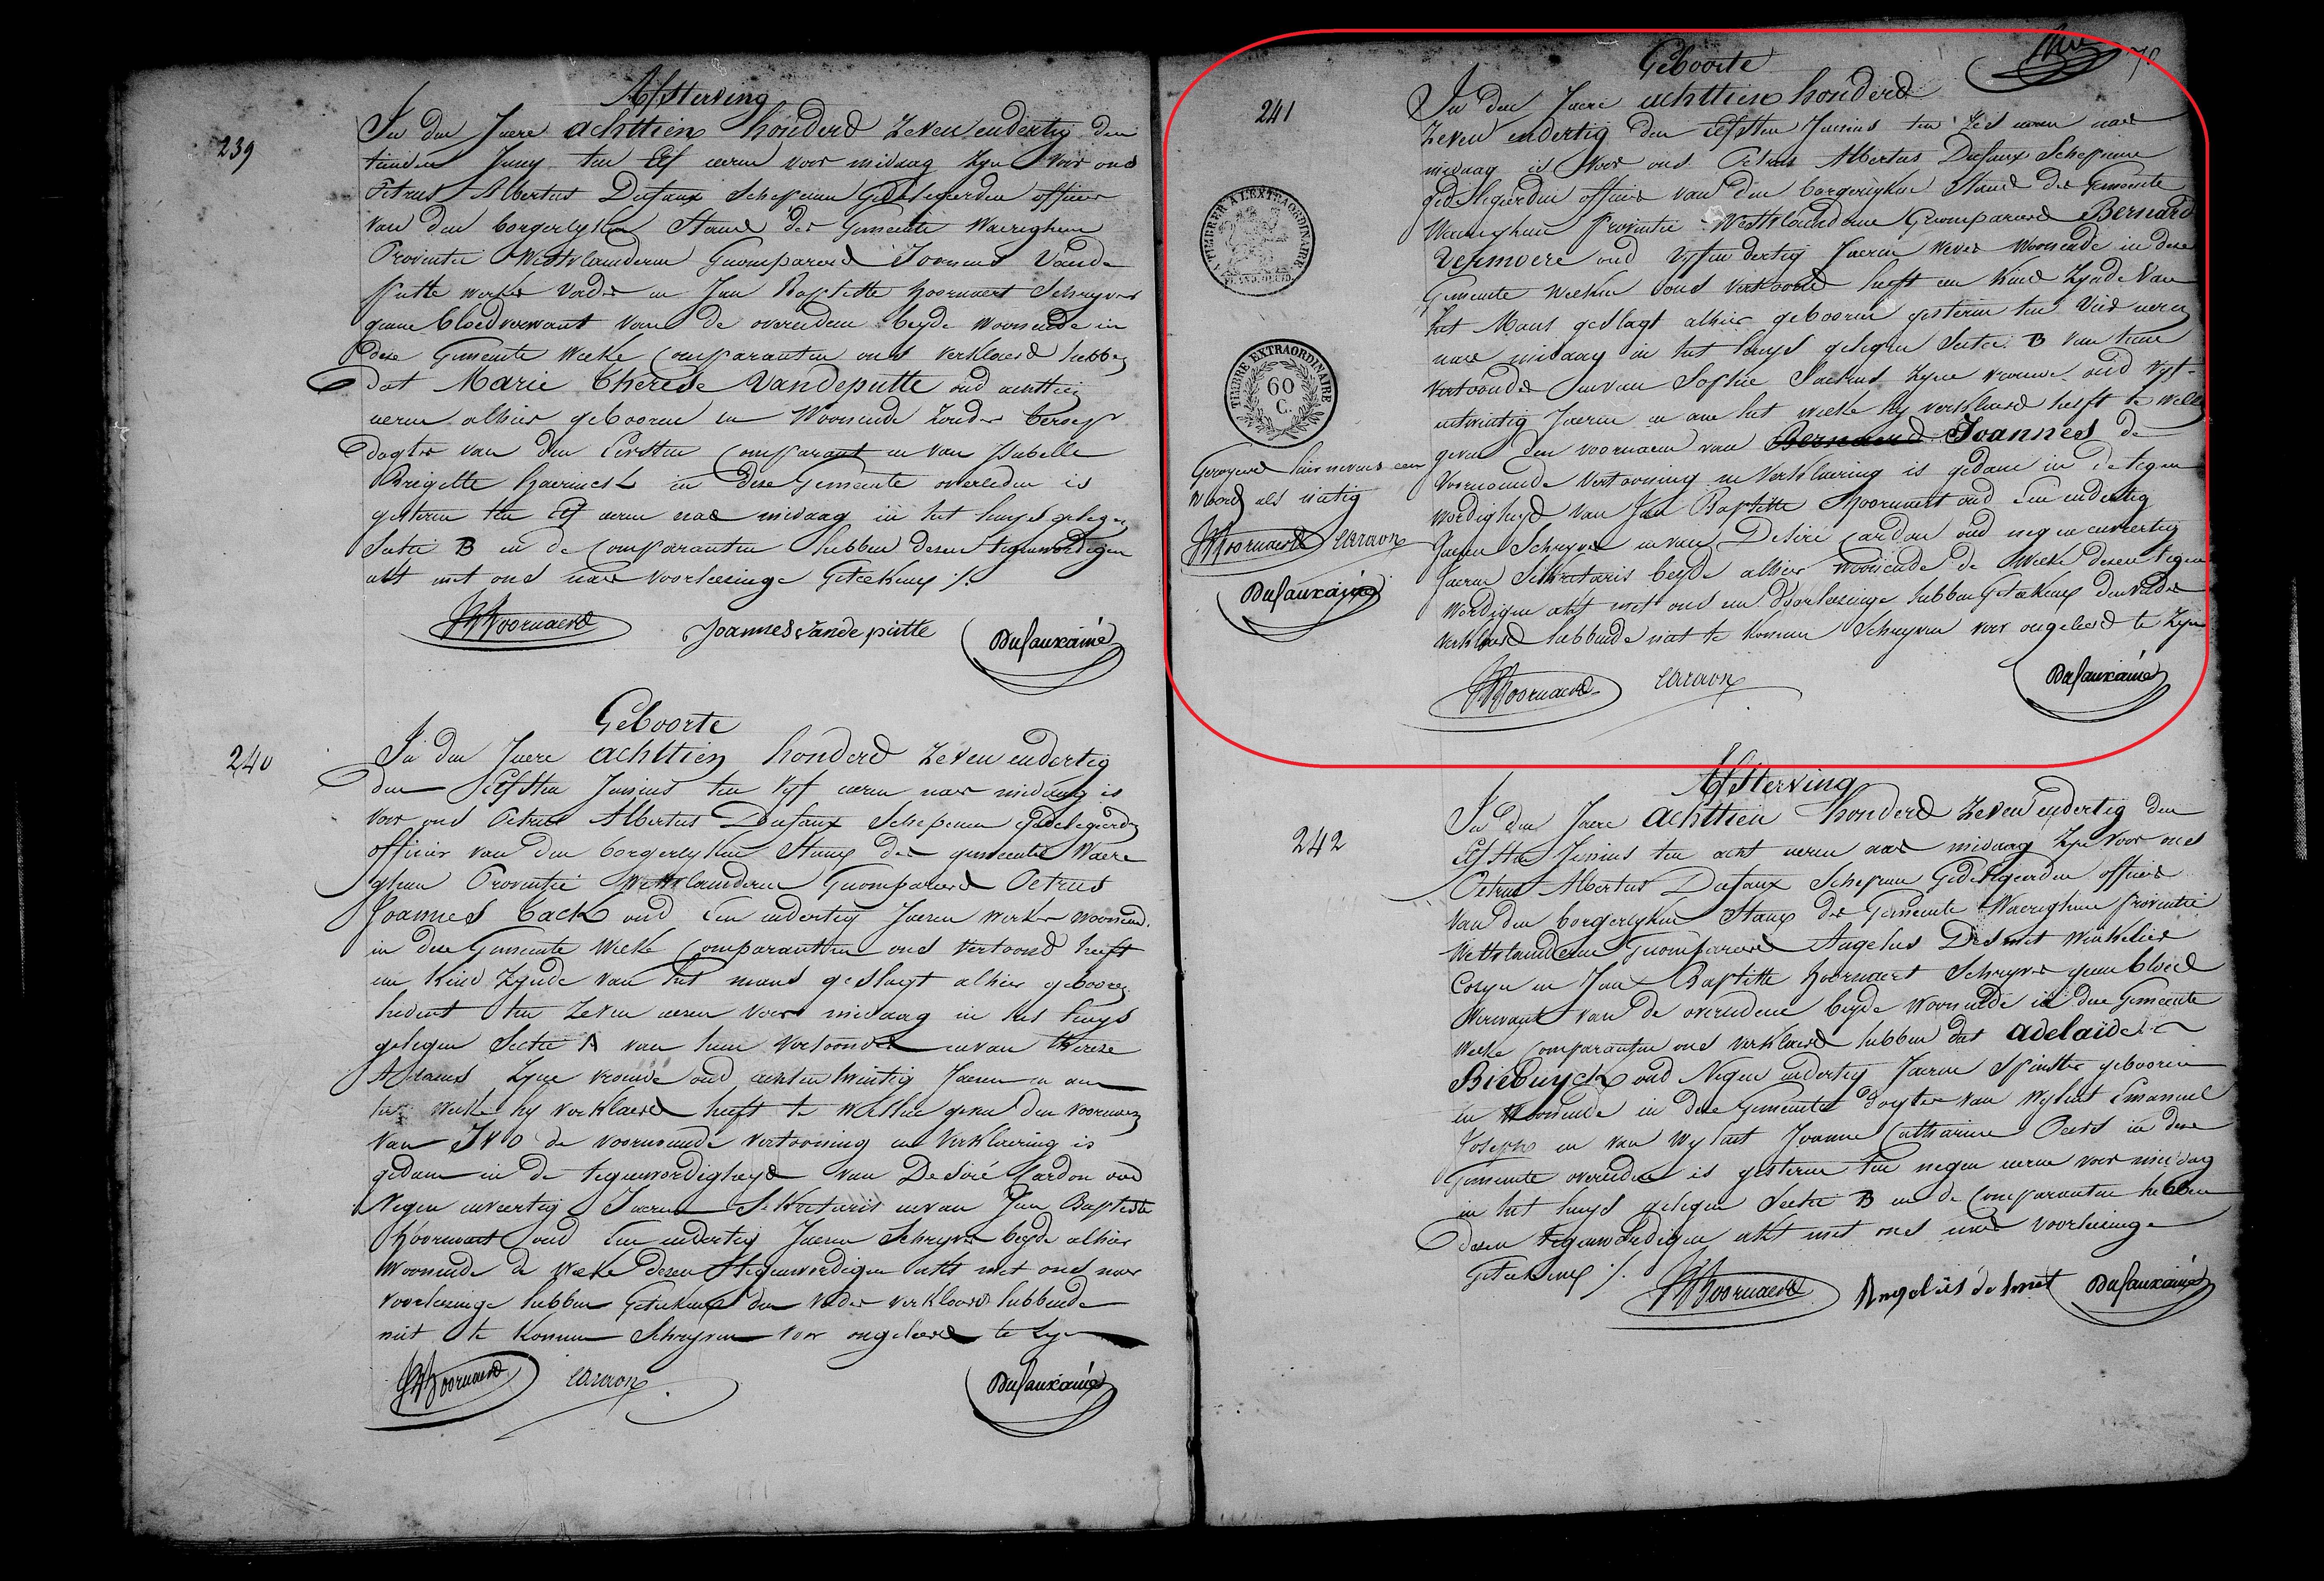 Afsterving
239
In den Jaere achttien honderd zeven endertig den
tienden Juny ten Elf ueren voor middag zyn voor ons
Petrus Albertus Dufaux Schepenen Gedelegeerden officier
van den borgerlyken Stand der Gemeente Waereghem
Provintie Westvlaenderen Gecompareerd Joannes Vande
putte werker Vader en Jan Baptiste Hoornaert Schryver
geene bloedverwant van de overledene beyde woonende in
dese Gemeente welke Comparanten ons verklaerd hebben
dat Marie Therese Vandeputte oud achttien
ueren alhier gebooren en Woonende zonder beroep
dogter van den Eersten Comparant en van Isabelle
Brigette in dese Gemeente overleden is
gisteren ten Elf ueren naer middag in het huys gelegen
Sectie B en de Comparanten hebben desen tegenwordigen
akt met ons naer voorlezinge Geteekend ./.
JB Hoornaert Joannes Vande putte Dufaux ainé
Geboorte
240
In den Jaere achttien honderd zeven endertig
den Elfsten Junius ten vyf ueren naer middag is
voor ons Petrus Albertus Dufaux Schepenen gedelegeerden
officier van den borgerlyken Stand der gemeente Waere
ghem Provintie Westvlaenderen Gecompareerd Petrus
Joannes Tack oud Een endertig Jaeren werker woonend.
in dese Gemeente welke Comparanten ons vertoond heeft
een kind zynde van het mans geslagt alhier gebooren
hedent ten zeven ueren voor middag in het huys
gelegen Sectie A van hem vertoonder en van Therese
zyne vrouwe oud achtentwintig Jaeren en aen
het welke hy verklaerd heeft te willen geven den voornaem
van Ivo de voornoemde vertooning en verklaering is
gedaen in de tegenwordigheyd van Desiré Cardon oud
Negen enveertig Jaeren Sekretaris en van Jan Baptiste
Hoornaert oud Een endertig Jaeren Schryver beyde alhier
Woonende de welke desen tegenwordigen akt met ons naer
voorlezinge hebben Geteekend den vader verklaerd hebbende
niet te konnen Schryven voor ongeleerd te zyn
JB Hoornaert Cardon Dufaux ainé
Geboorte
241
In den Jaere achttien honderd
zeven endertig den Elfsten Junius ten zes ueren naer
middag is voor ons Petrus Albertus Dufaux Schepenen
gedelegeerden officier van den borgerlyken Stand der Gemeente
Waereghem Provintie Westvlaenderen Gecompareerd Bernard
Vermoere oud vyfendertig Jaeren wever Woonende in dese
Gemeente welken ons vertoond heeft een kind zynde van
het Mans geslagt alhier gebooren gisteren ten vier ueren
naer middag in het huys gelegen Sectie B van hem
vertoonder en van Sophie zyne vrouwe oud vyf-
entwintig Jaeren en aen het welke hy verklaerd heeft te willen
geven den voornaem van Bernard Joannes de
voornoemde vertooning en verklaering is gedaen in de tegen
wordigheyd van Jan Baptiste Hoornaert oud Een endertig
Jaeren Schryver en van Desiré Cardon oud negen enveertig
Jaeren Sekretaris beyde alhier woonende de welke desen tegen
wordigen akt met ons naer voorlezinge hebben Geteekend den vader
verklaerd hebbende niet te konnen Schryven voor ongeleerd te zyn
JB Hoornaert Cardon Dufaux ainé
A TIMBRER A L'EXTRAORDINAIRE
TIMBRE EXTRAORDINAIRE
60
C.
Geroyeerd hier nevens een
woord als nietig
JB Hoornaert Cardon
Dufaux ainé
Afsterving
242
In den Jaere achttien honderd zeven endertig den
Elfsten Junius ten acht ueren naer middag zyn voor ons
Petrus Albertus Dufaux Schepenen Gedelegeerden officier
van den borgerlyken Stand der Gemeente Waereghem Provintie
Westvlaenderen Gecompareerd Angelus Desmet Winkelier
Cozyn en Jan Baptiste Hoornaert Schryver geen bloed
Verwant van de overledene beyde Woonende in dese Gemeente
welke Comparanten ons verklaerd hebben dat Adelaïde
Biebuyck oud Negen endertig Jaeren Spinster gebooren
en Woonende in dese Gemeente Dogter van wylent Emanuel
Joseph en van wylent Joanne Catharine in dese
Gemeente overleden is gisteren ten negen ueren voor middag
in het huys gelegen Sectie B en de Comparanten hebben
desen tegenwordigen akt met ons naer voorlezinge
Geteekend ./.
JB Hoornaert Angelus de Smet Dufaux ainé